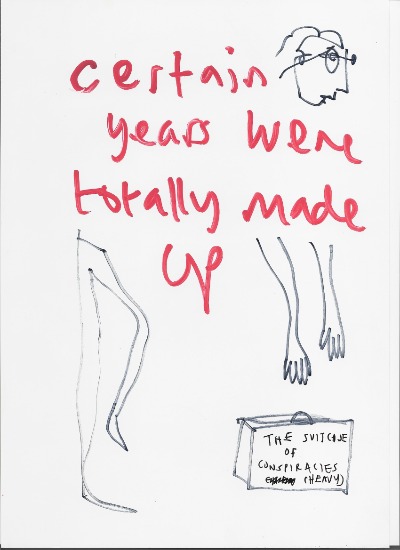 certain
years were
totally made
up
THE SUITCASE
OF
CONSPIRACIES
(HEAVY)